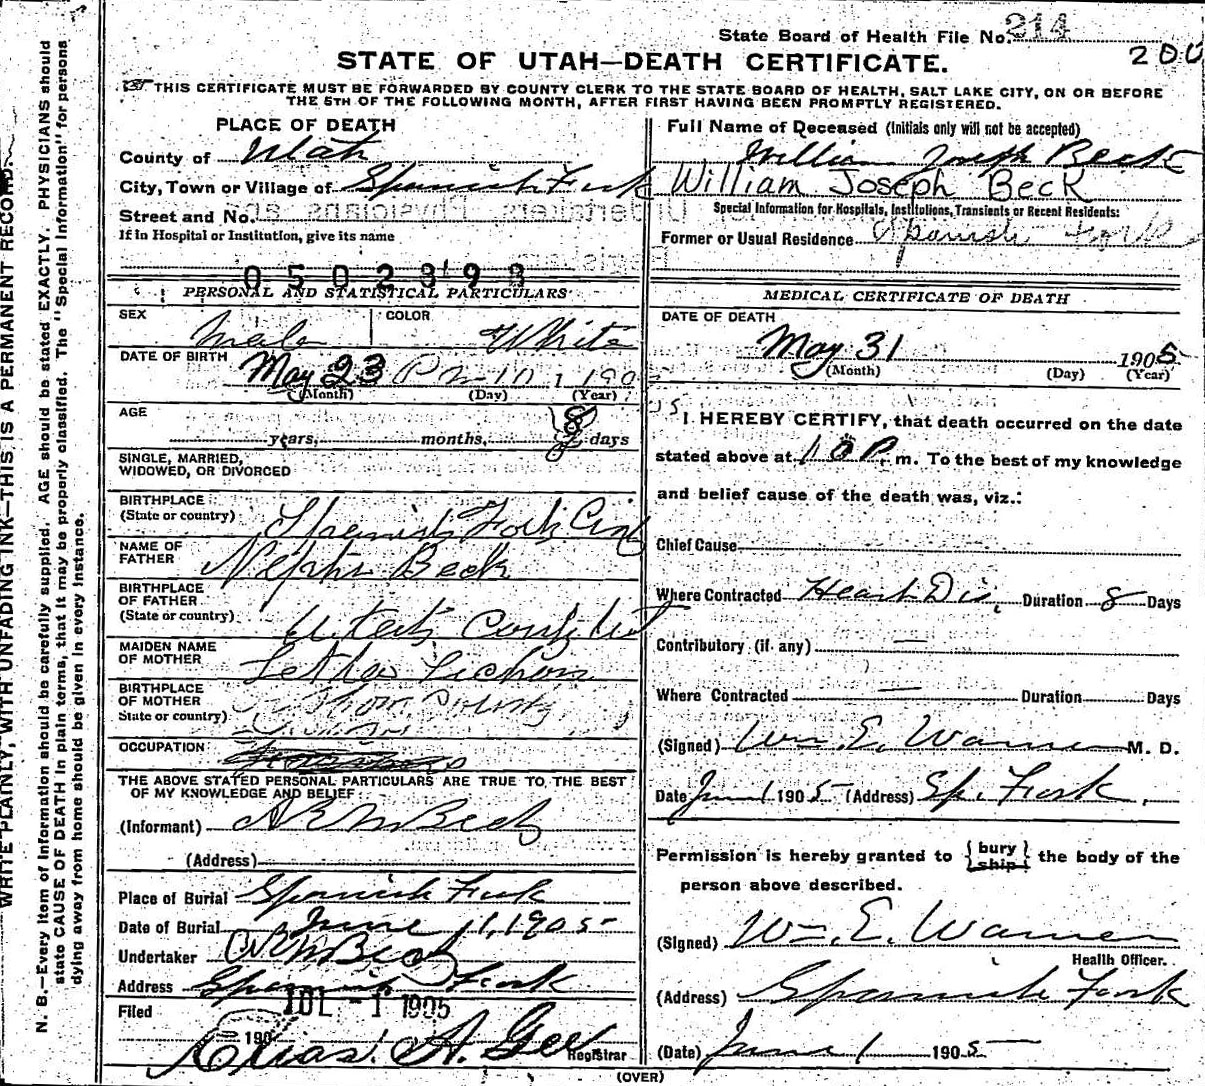 State Board of Health File No. 214
200
STATE OF UTAH—DEATH CERTIFICATE.
THIS CERTIFICATE MUST BE FORWARDED BY COUNTY CLERK TO THE STATE BOARD OF HEALTH, SALT LAKE CITY, ON OR BEFORE
THE 5TH OF THE FOLLOWING MONTH, AFTER FIRST HAVING BEEN PROMPTLY REGISTERED.
WRITE PLAINLY, WITH UNFADING INK—THIS IS A PERMANENT RECORD.
N. B.—Every item of information should be carefully supplied. AGE should be stated EXACTLY. PHYSICIANS should
state CAUSE OF DEATH in plain terms, that it may be properly classified. The "Special Information" for persons
dying away from home should be given in every instance.
PLACE OF DEATH
County of Utah
City, Town or Village of Spanish Fork
Street and No.
If in Hospital or Institution, give its name
0502898
PERSONAL AND STATISTICAL PARTICULARS
SEX Male COLOR White
DATE OF BIRTH May 23
(Month) (Day) (Year)
AGE
years, months, 8 days
SINGLE, MARRIED,
WIDOWED, OR DIVORCED
BIRTHPLACE
(State or country) Spanish Fork City
NAME OF
FATHER Nephi Beck
BIRTHPLACE
OF FATHER
(State or country)
MAIDEN NAME
OF MOTHER
BIRTHPLACE
OF MOTHER
State or country)
OCCUPATION
THE ABOVE STATED PERSONAL PARTICULARS ARE TRUE TO THE BEST
OF MY KNOWLEDGE AND BELIEF
(Informant) Beck
(Address)
Place of Burial Spanish Fork
Date of Burial June 1, 1905
Undertaker Beck
Address Spanish Fork
Filed JUL - 1 1905
190
Chas. A. Gee Registrar
Full Name of Deceased (Initials only will not be accepted)
William Joseph Beck
William Joseph Beck
Special Information for Hospitals, Institutions, Transients or Recent Residents:
Former or Usual Residence Spanish Fork
MEDICAL CERTIFICATE OF DEATH
DATE OF DEATH
May 31 1905
(Month) (Day) (Year)
I HEREBY CERTIFY, that death occurred on the date
stated above at 10 P. m. To the best of my knowledge
and belief cause of the death was, viz.:
Chief Cause
Where Contracted Heart Dis, Duration 8 Days
Contributory (if any) —
Where Contracted — Duration Days
(Signed) Wm. E. Warner M. D.
Date June 1 1905 (Address) Sp. Fork
Permission is hereby granted to {bury ship} the body of the
person above described.
(Signed) Wm. E. Warner
Health Officer.
(Address) Spanish Fork
(Date) June 1 1905
(OVER)